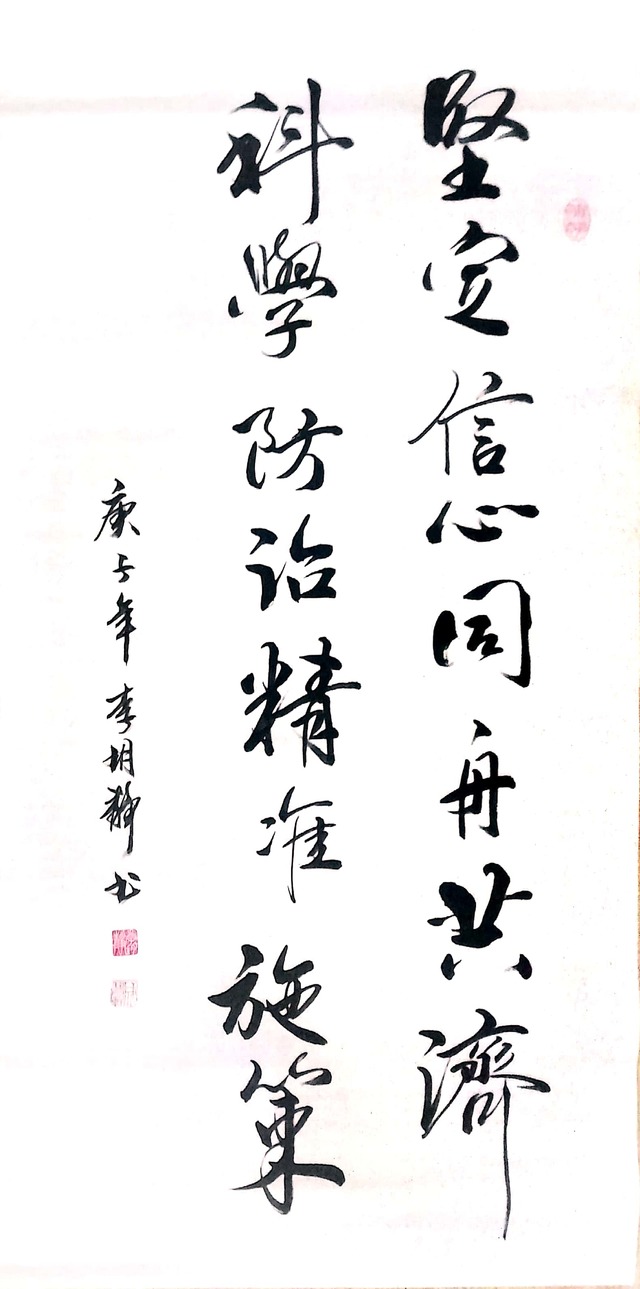 堅定信心同舟共濟
科學防治精准施策
庚子年李明靜书